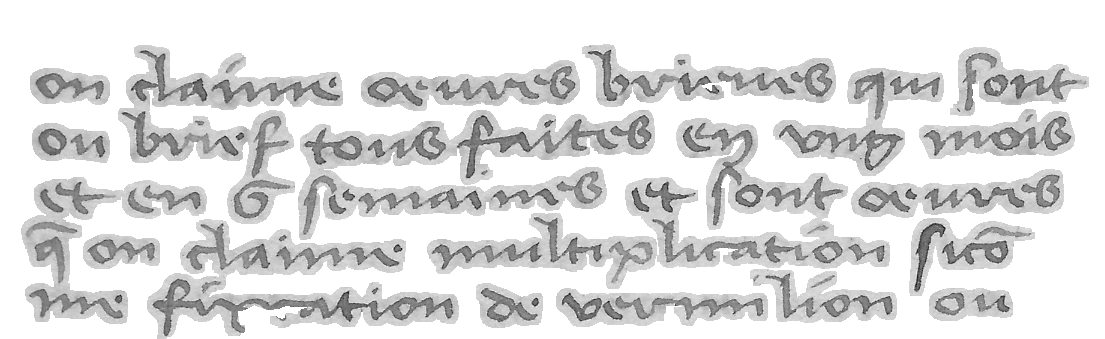 on claime oeuures brieues qui sont
ou brief tous faites en vng mois
et en 6 semaines et sont oeuures
q̄ on claime multiplication sicō
me fixation de vermilion ou